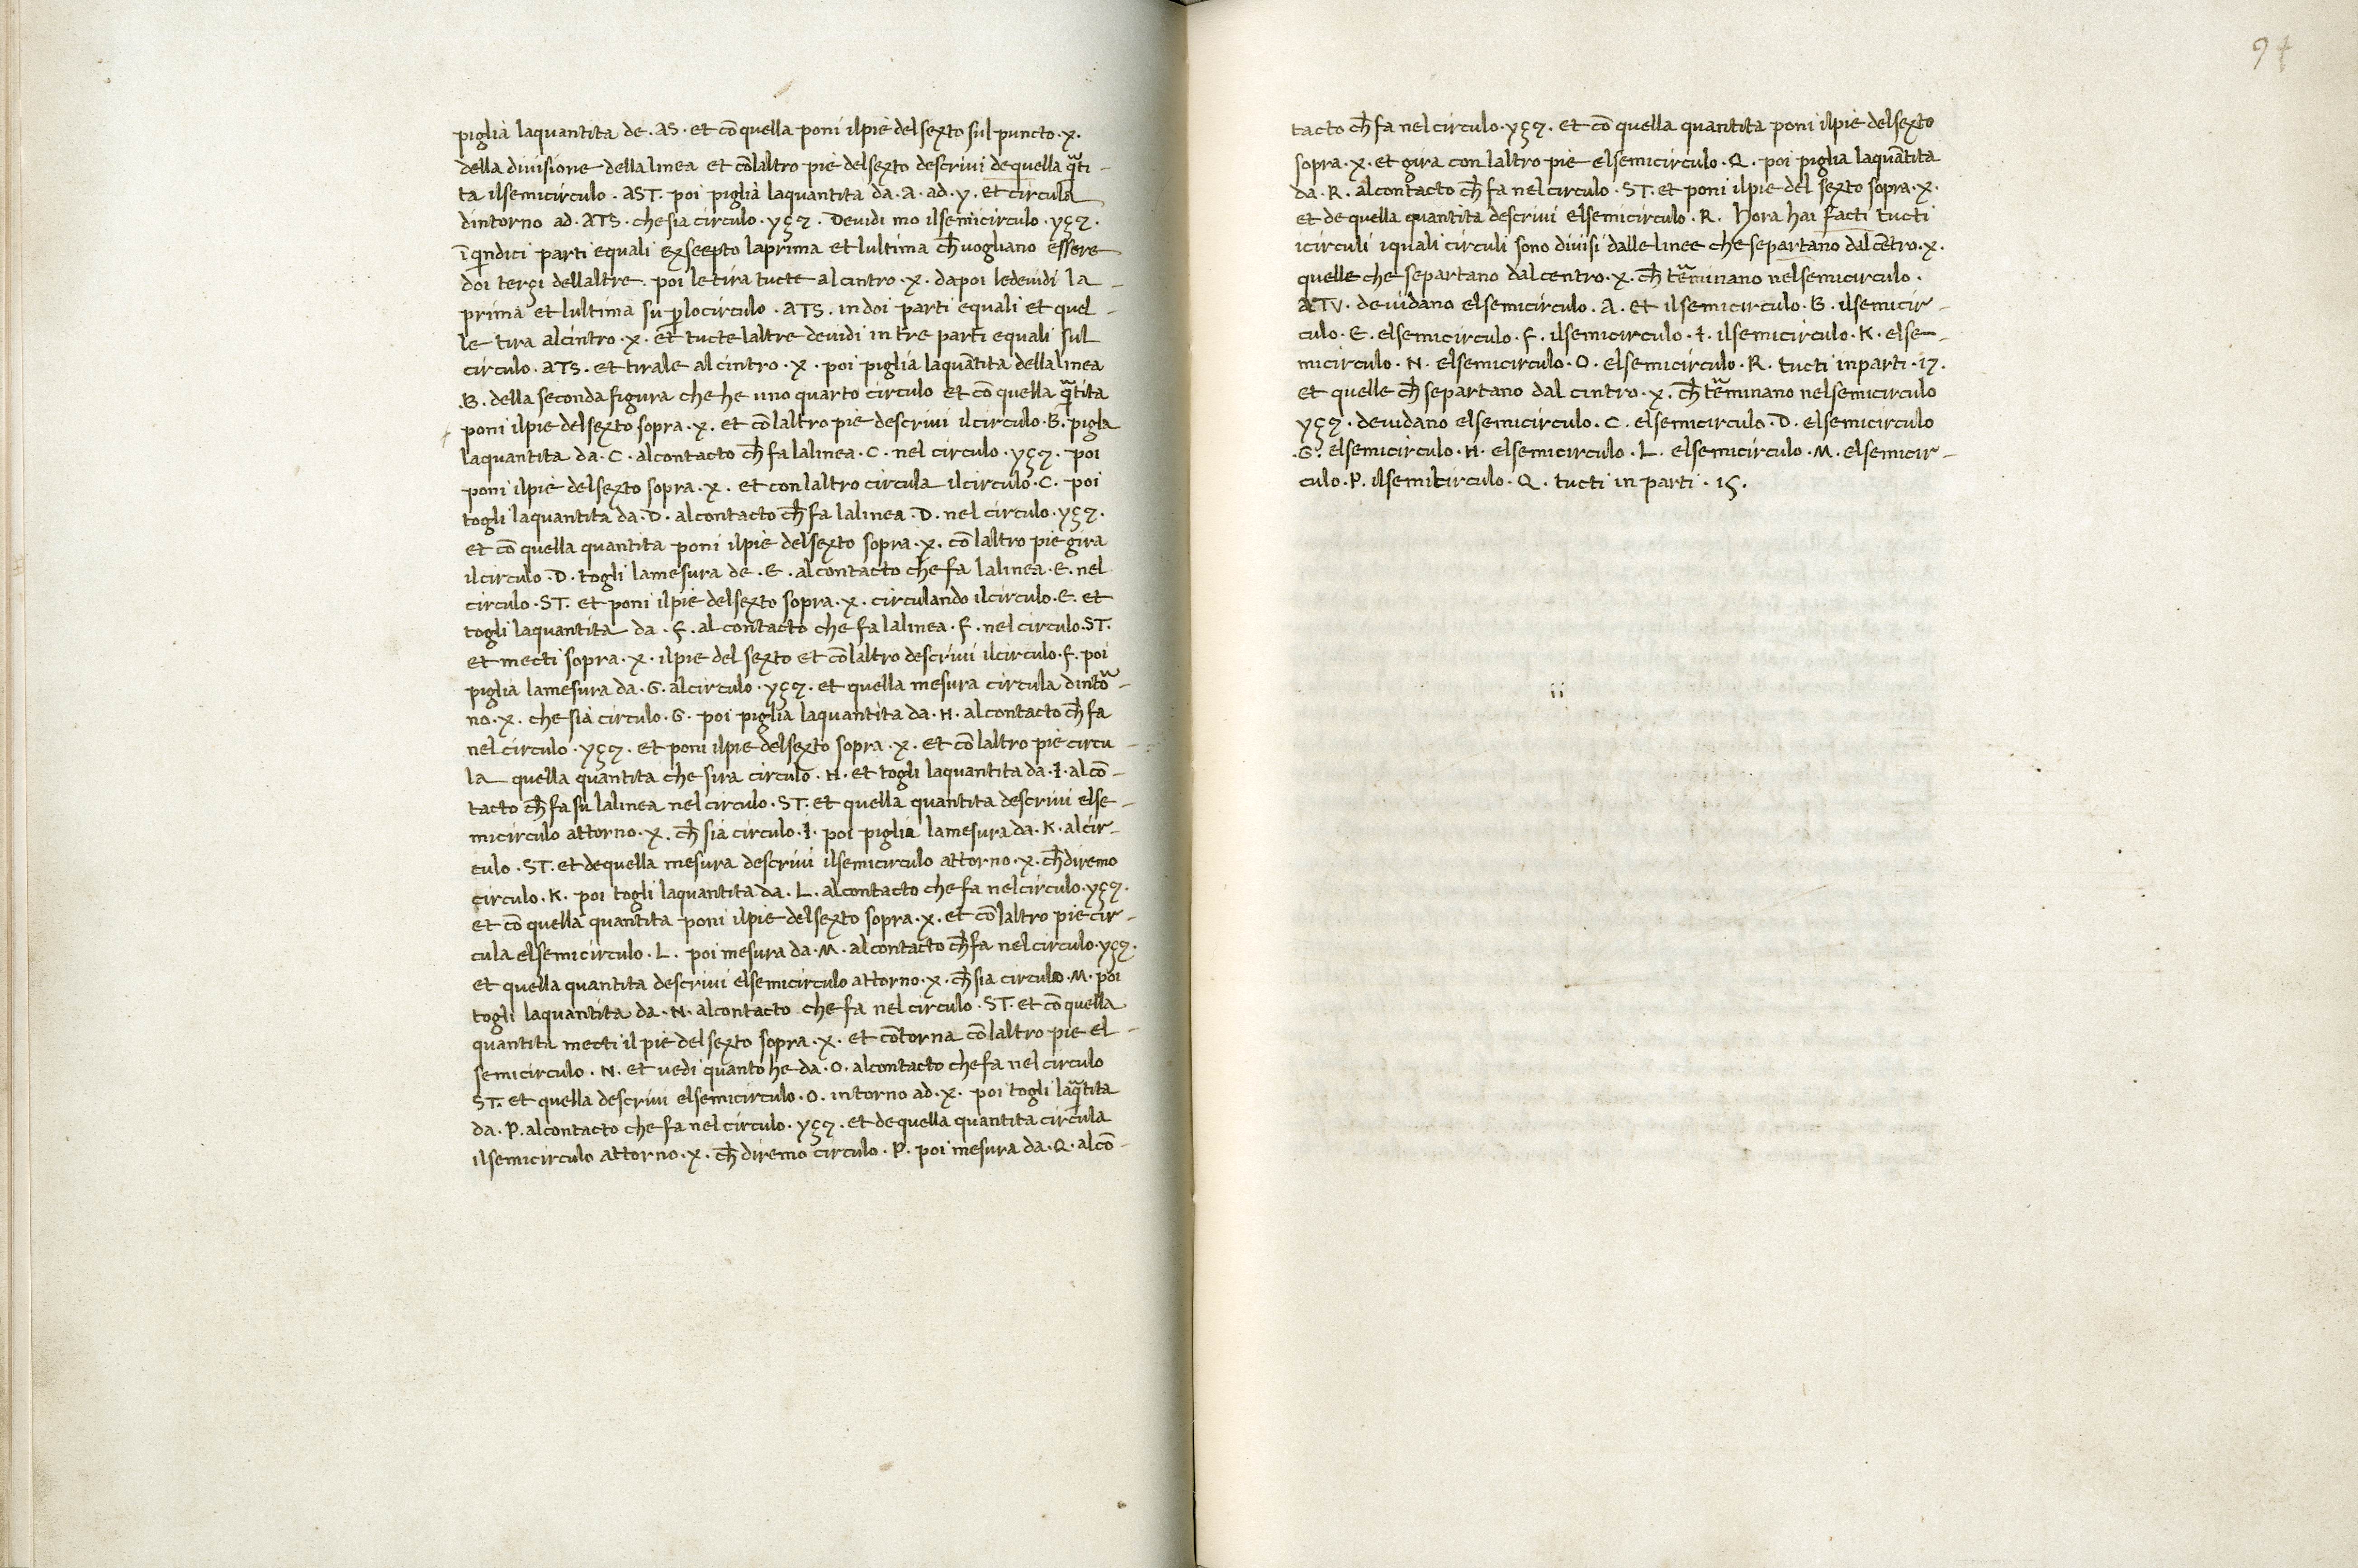 piglia laquantita de .AS. et cō quella poni ilpie del sexto sul puncto .x.
della divisione della linea et cō laltro pie del sexto descrivi de quella q̄ti-
ta ilsemicirculo . AST. poi piglia laquantita da .A. ad .y. et circula
dintorno ad .ATS. che sia circulo .yçz. Devidi mo ilsemicirculo .yçz.
ī q̄indici parti equali exseepto laprima et lultima ch̄ vogliano essere
doi terçi dellaltre poi letira tucte al cintro .x. dapoi ledevidi la
prima et lultima su p̄ lo circulo .ATS. in doi parti equali et quel-
le tira al cintro .x. et tucte laltre devidi in tre parti equali sul
circulo .ATS. et tirale al cintro .x. poi piglia laquātita della linea
.B. della seconda figura che he uno quarto circulo et cō quella q̄tita
poni ilpie del sexto sopra .x. et cō laltro pie descrivi ilcirculo .B. pigla
laquantita da .C. alcontacto ch̄ fa lalinea .C. nel circulo .yçz. poi
poni ilpie del sexto sopra .x. et con laltro circula ilcirculo .C. poi
togli laquantita da .D. alcontacto ch̄ fa lalinea .D. nel circulo .yçz.
et cō quella quantita poni ilpie del sexto sopra .x. cō laltro pie gira
ilcirculo .D. togli lamesura de .E. alcontacto che fa lalinea .E. nel
circulo .ST. et poni ilpie del sexto sopra .x. circulando ilcirculo .E. et
togli laquantita da .F. al contacto che fa lalinea .F. nel circulo .ST.
et mecti sopra .x. ilpie del sexto et cō laltro descrivi ilcirculo .F. poi
piglia lamesura da .G. alcirculo .yçz. et quella mesura circula dinto-
no .x. che sia circulo .G. poi piglia laquantita da .H. alcontacto ch̄ fa
nel circulo .yçz. et poni ilpie del sexto sopra .x. et cō laltro pie circu-
la quella quantita che sira circulo .H. et togli laquantita da .I. alcō-
tacto ch̄ fa su lalinea nel circulo .ST. et quella quantita descrivi else-
micirculo attorno .x. ch̄ sia circulo .I. poi piglia lamesura da .K. alcir-
culo .ST. et de quella mesura descrivi ilsemicirculo attorno .x. ch̄ diremo
circulo .K. poi togli laquantita da .L. alcontacto che fa nel circulo .yçz.
et cō quella quantita poni ilpie del sexto sopra .x. et cō laltro pie cir-
cula elsemicirculo .L. poi mesura da .M. alcontacto ch̄ fa nel circulo .yçz.
et quella quantita descrivi elsemicirculo attorno .x. ch̄ sia circulo .M. poi
togli laquantita da .N. alcontacto che fa nel circulo .ST. et cō quella
quantita mecti il pie del sexto sopra .x. et cōtorna cō laltro pie el-
semicirculo .N. et vedi quanto he da .O. alcontacto che fa nel circulo
ST. et quella descrivi elsemicirculo .O. intorno ad .x. poi togli laq̄tita
da .P. alcontacto che fa nel circulo .yçz. et de quella quantita circula
ilsemicirculo attorno .x. ch̄ diremo circulo .P. poi mesura da .Q. alcō-
94
tacto ch̄ fa nel circulo .yçz. et cō quella quantita poni ilpie del sexto
sopra .x. et gira con laltro pie elsemicirculo .Q. poi piglia laquātita
da .R. alcontacto ch̄ fa nel circulo .ST. et poni ilpie del sexto sopra .x.
et de quella quantita descrivi elsemicirculo .R. Hora hai facti tucti
icirculi iquali circuli sono divisi dalle linee che separtano dal cētro .x.
quelle che separtano dal centro .x. ch̄ t̄minano nel semicirculo .
ATV. devidano elsemicirculo .A. et ilsemicirculo .B. ilsemicir-
culo .E. elsemicirculo .F. ilsemicirculo .I. ilsemicirculo .K. else-
micirculo .N. elsemicirculo .O. elsemicirculo .R. tucti inparti .17.
et quelle ch̄ separtano dal cintro .x. ch̄ t̄minano nel semicirculo
yçz. devidano elsemicirculo .C. elsemicirculo .D. elsemicirculo
.G. elsemicirculo .H. elsemicirculo .L. elsemicirculo .M. elsemicir-
culo .P. ilsemicirculo .Q. tucti in parti .15.